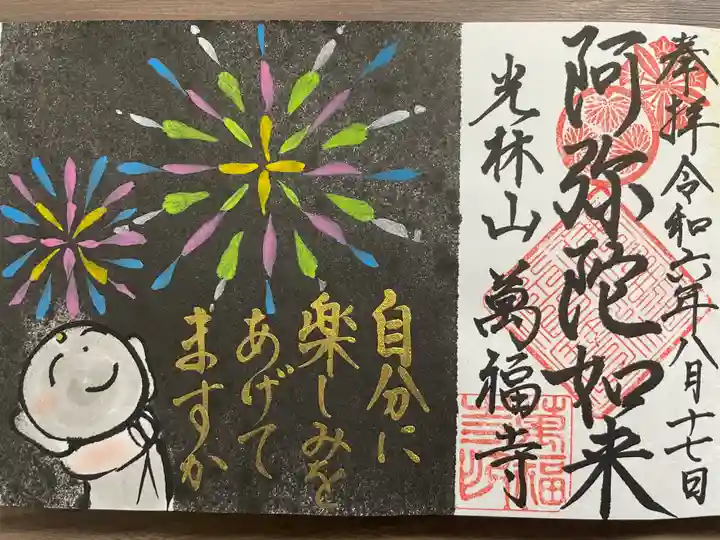 奉拝令和六年八月十七日
阿弥陀如来
光林山萬福寺
自分に
楽しみを
あげて
ますか